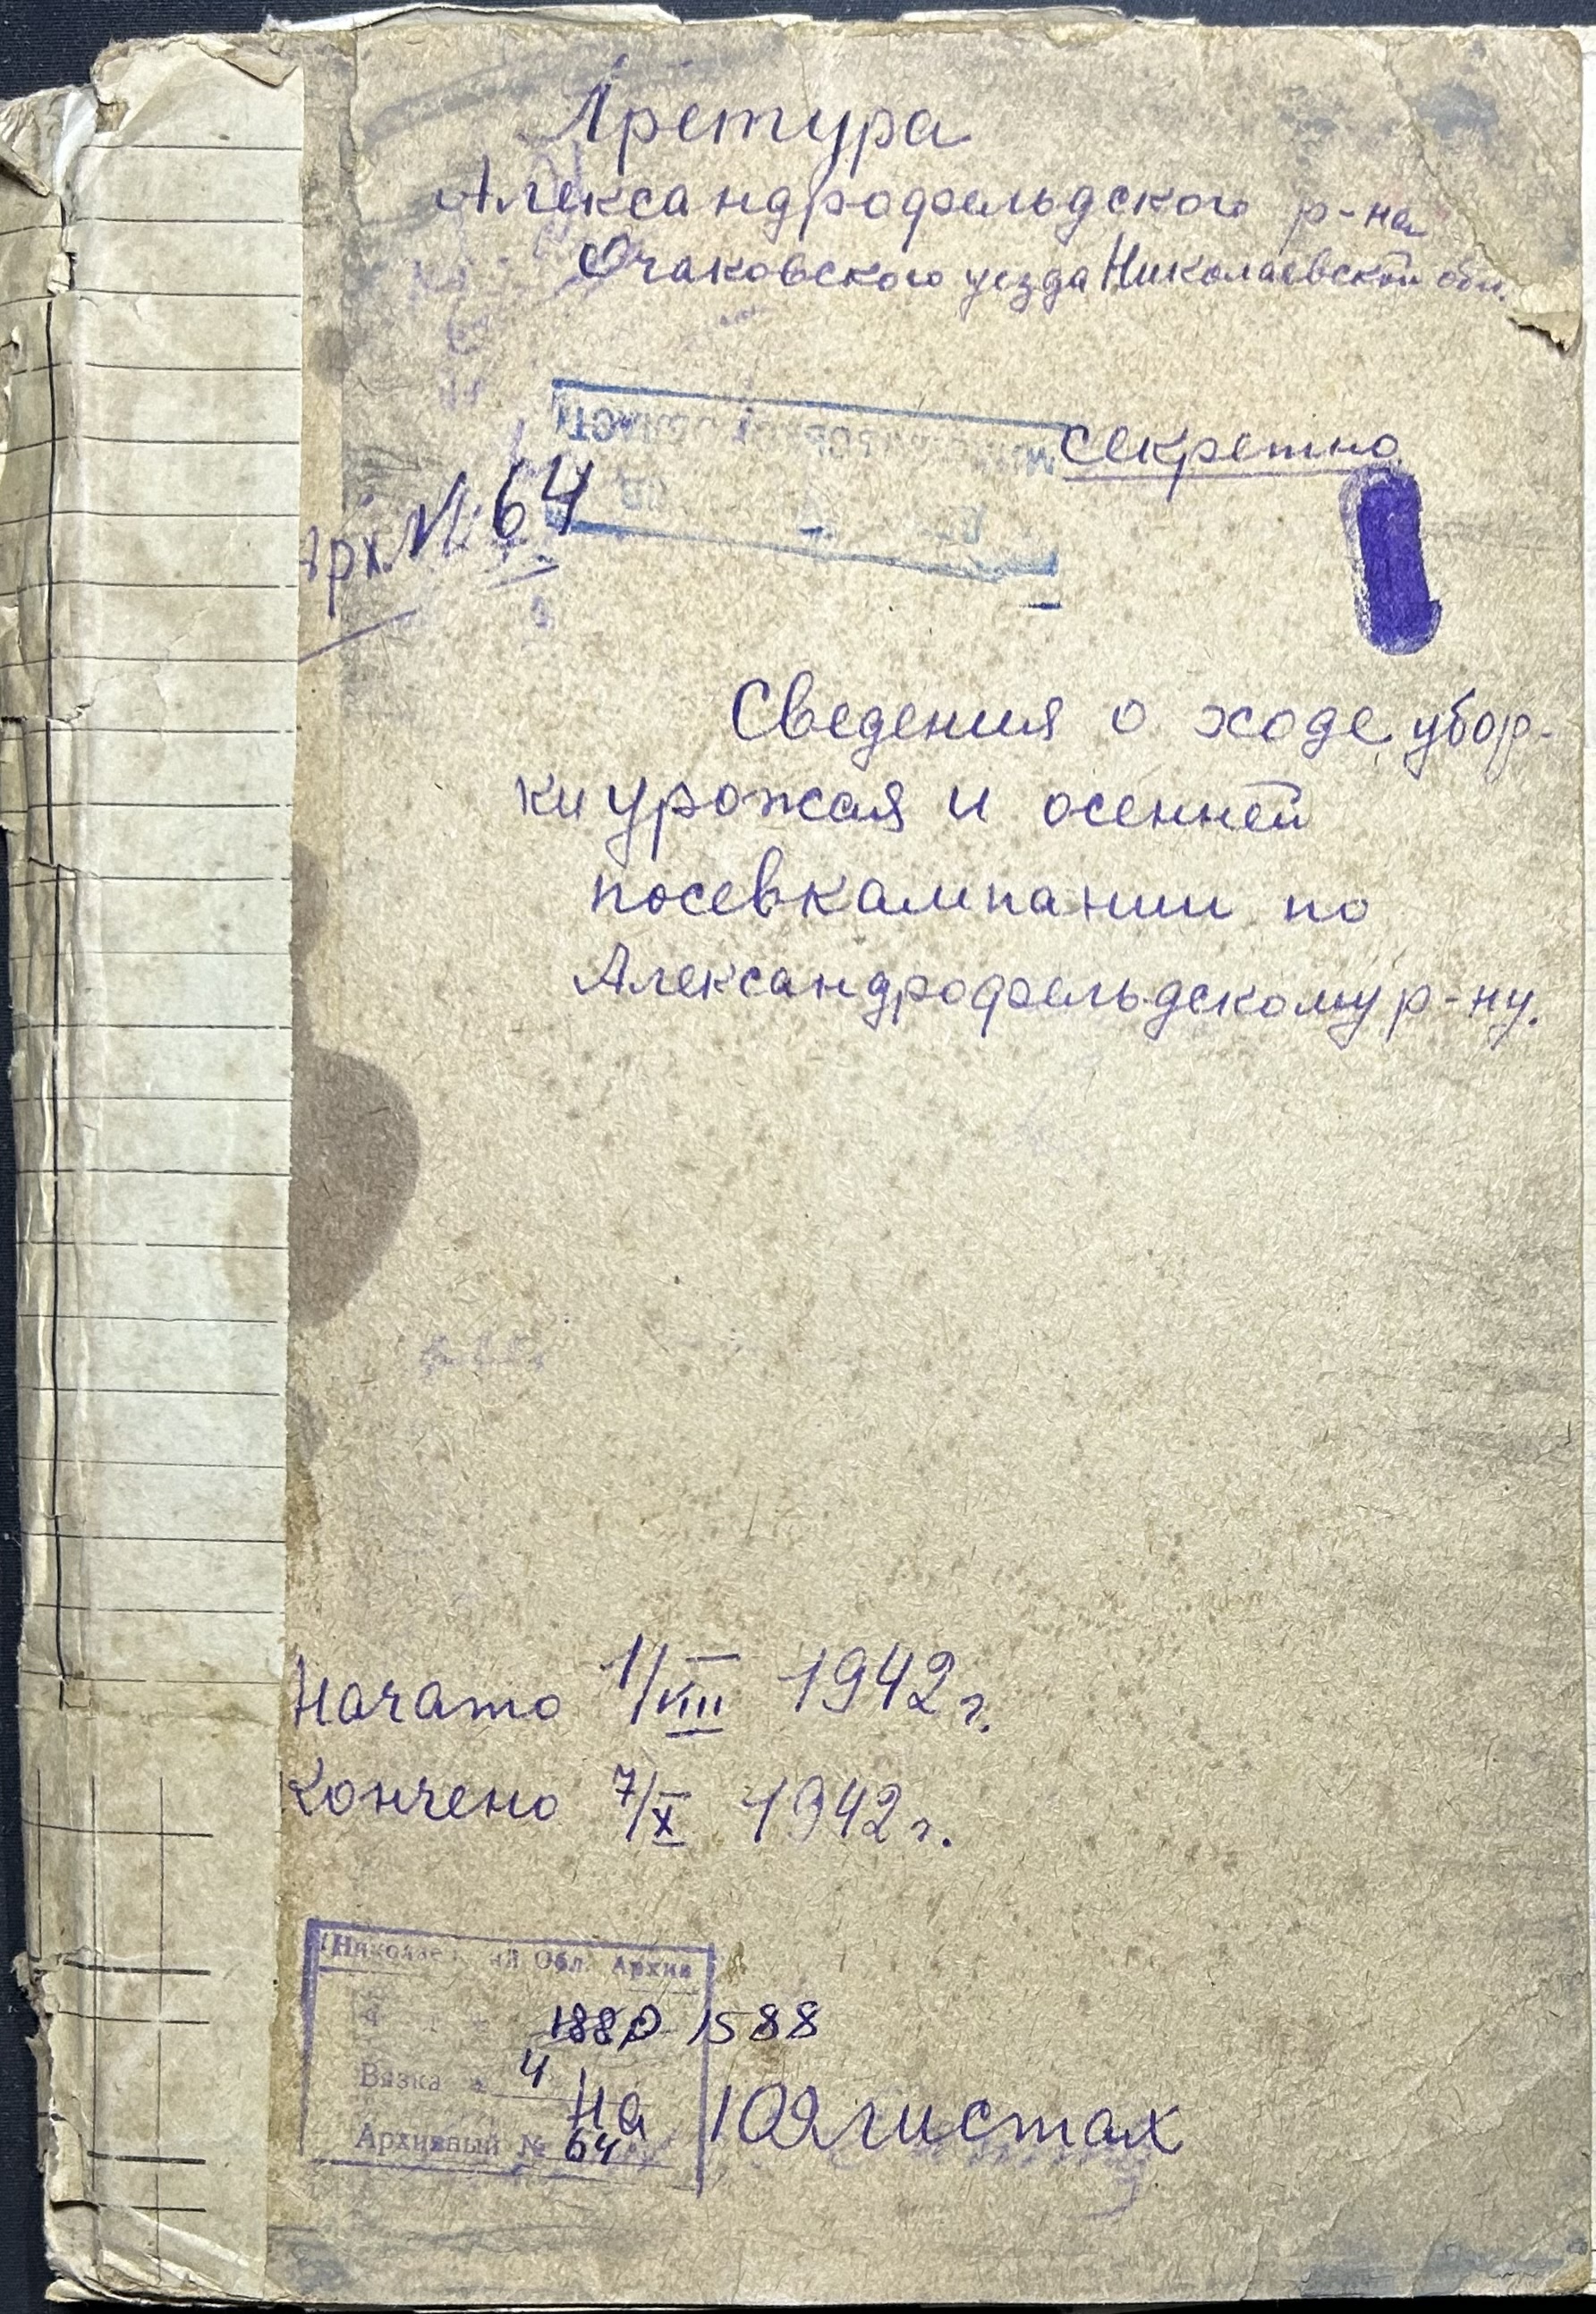 Претура
Александрофельдского р-на
Очаковского уезда Николаевской обл.
секретно
Арх. № 64
Сведения о ходе убор-
ки урожая и осенней
посевкампании по
Александрофельдскому р-ну.
Начато 1/VIII 1942 г.
Кончено 7/X 1942 г.
Обл. Архив
1588
Вязка 4
На 102 листах
Архивный № 64